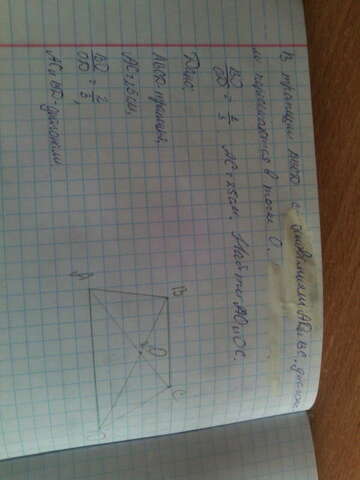 В трапеции ABCD с основаниями AD и BC, диагона
ли пересекаются в точке O.
BO/OD = 2/3 AC = 25см. Найти AO и OC.
Дано:
ABCD-трапеция
AC = 25см,
BO/OD = 2/3,
AC и BD-диагонали.
A
B
O
C